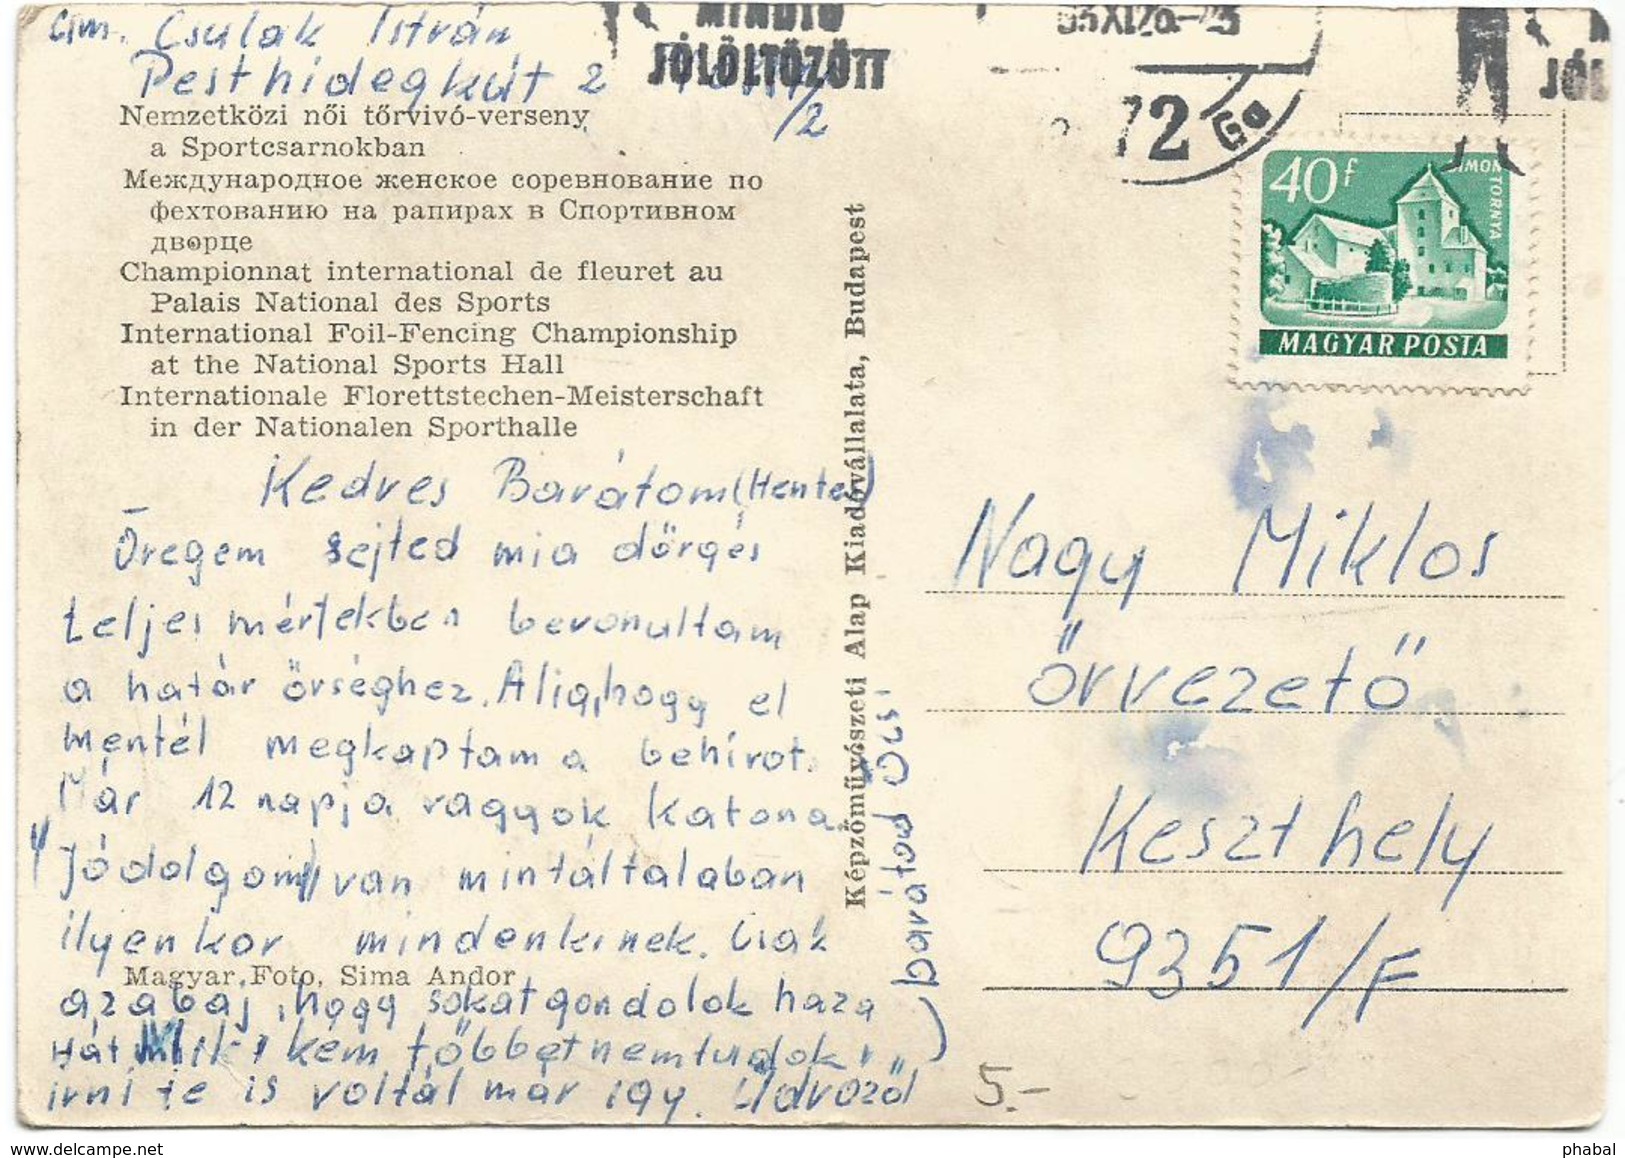 cím. Csulak István
Pesthidegkút 2
/2
Nemzetközi női tőrvívó-verseny
a Sportcsarnokban
Международное женское соревнование по
фехтованию на рапирах в Спортивном
дворце
Championnat international de fleuret au
Palais National des Sports
International Foil-Fencing Championship
at the National Sports Hall
Internationale Florettstechen-Meisterschaft
in der Nationalen Sporthalle
Kedves Barátom (Hentes)
Öregem sejted mia dörgés
teljes mértekben bevonultam
a határ őrséghez. Alig, hogy el
mentél megkaptam a behívot.
Már 12 napja vagyok katona.
Jódolgom van mintáltalaban
ilyenkor mindenkinek. Csak
azabaj, hogy sokatgondolok haza
Hát Miki kem többetnemtudok
irni te is voltál már igy. Üdvözöl
barátod Öcsi
Magyar Foto, Sima Andor
Képzőművészeti Alap Kiadóvállalata, Budapest
MINDIG
JÓLÖLTÖZÖTT
72
JÓL
40f
SIMONTORNYA
MAGYAR POSTA
Nagy Miklos
őrvezető
Keszthely
9351/F
5.-
phabal
www.delcampe.net